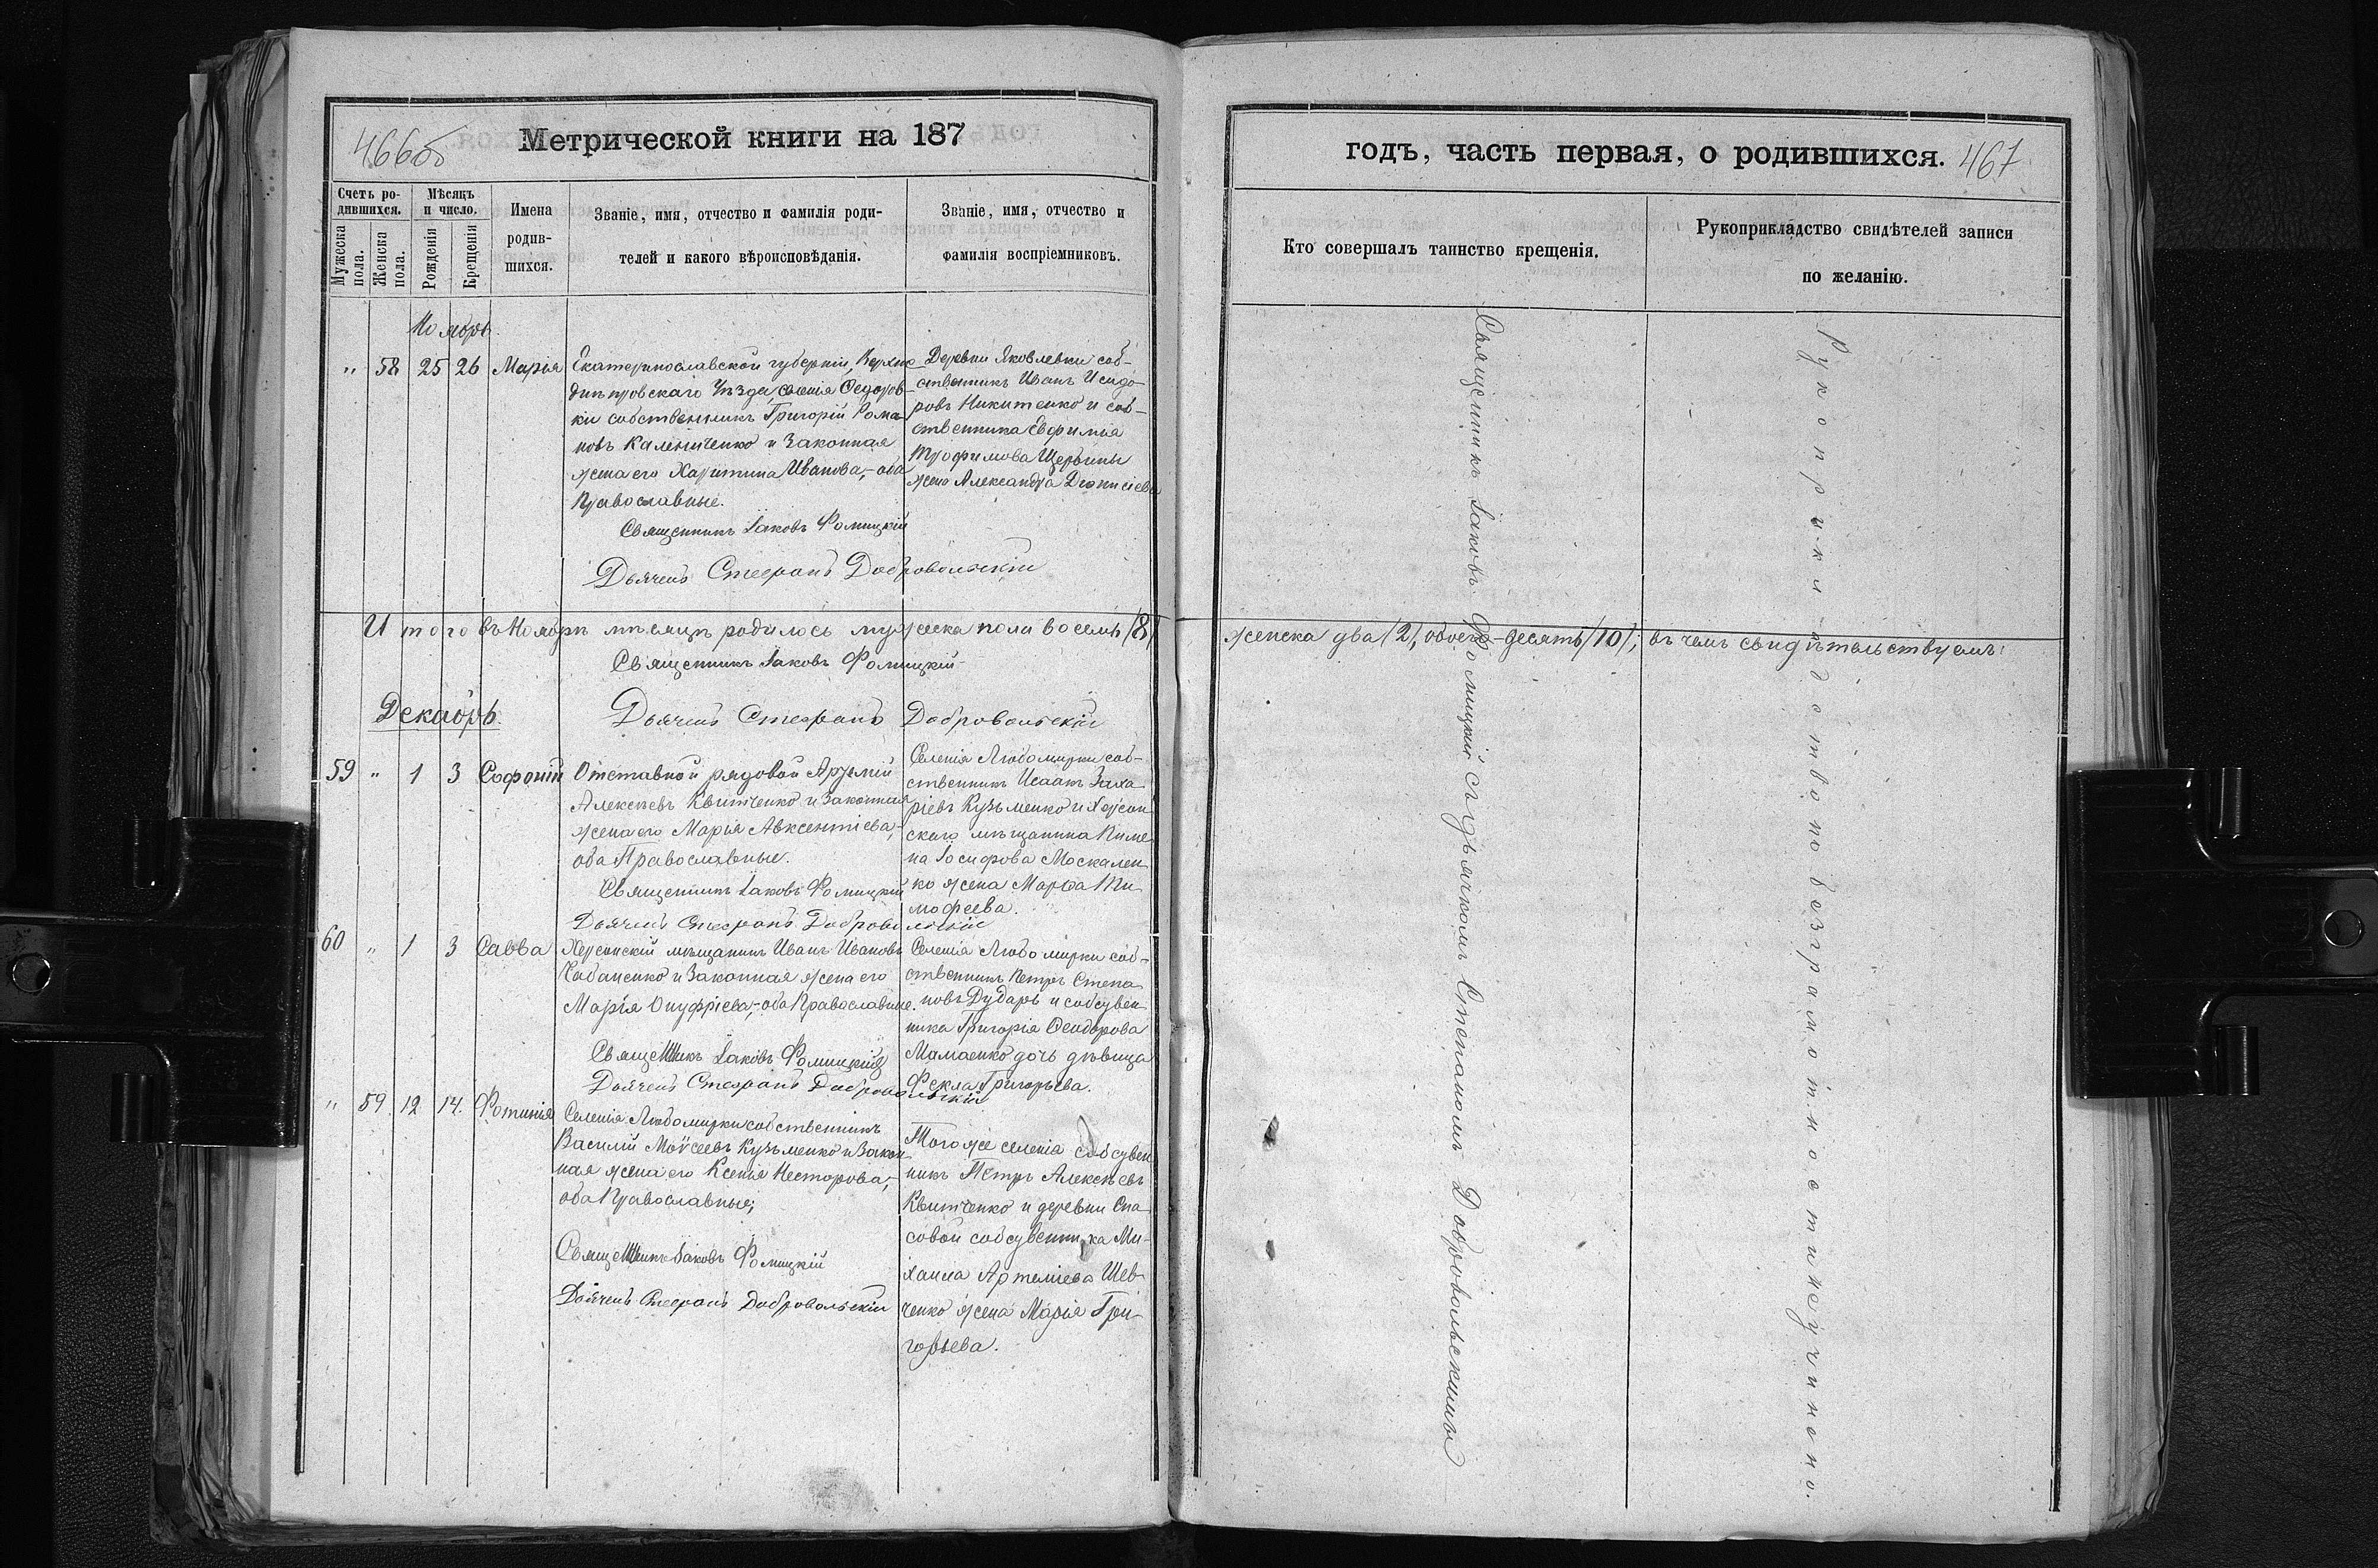 466об
Метрической книги на 187
Счетъ ро-
дившихся.
Мѣсяцъ
и число.
Мужеска
пола.
Женска
пола.
Рожденія
Крещенія
Имена
родив-
шихся.
Званіе, имя, отчество и фамилія роди-
телей и какого вѣроисповѣданія.
Званіе, имя, отчество и
фамилія воспріемниковъ.
Ноябрь.
" 58 25 26 Марія
Екатеринославской губерніи, Верхне-
днѣпровскаго Уѣзда, селенія Ѳедоров-
ки собственникъ Григорій Рома-
новъ Калениченко и законная
жена его Харитина Иванова,- оба
Православные.
Священникъ Іаковъ Фомицкій
Дьячекъ Стефанъ Добровольскій
Деревни Яковлевки соб-
ственникъ Иванъ Исидо-
ровъ Никитенко и соб-
ственника Евфимія
Трофимова Щербины
жена Александра Діонисіева
Итого въ Ноябрѣ мѣсяцѣ родилось мужеска пола восемь /8/
Священникъ Іаковъ Фомицкій
Дьячекъ Стефанъ Добровольскій
Декабрь.
59 " 1 3 Софоній
Отставной рядовой Артемій
Алексѣевъ Квитченко и законная
жена его Марія Авксентіева,-
оба Православные.
Священникъ Іаковъ Фомицкій
Дьячекъ Стефанъ Добровольскій
Селенія Любомирки соб-
ственникъ Исаакъ Заха-
ріевъ Кузьменко и Херсон-
скаго мѣщанина Пиме-
на Іосифова Москален-
ко жена Марѳа Ти-
мофеева.
60 " 1 3 Савва
Херсонскій мѣщанинъ Иванъ Ивановъ
Кабаненко и законная жена его
Марія Онуфріева,- оба Православные.
Священникъ Іаковъ Фомицкій
Дьячекъ Стефанъ Добровольскій
Селенія Любомирки соб-
ственникъ Петръ Степа-
новъ Дударь и собствен-
ника Григорія Ѳеодорова
Мамаенко дочь дѣвица
Ѳекла Григорьева.
" 59. 12 14. Фотинія
Селенія Любомирки собственникъ
Василій Моѵсеевъ Кузьменко и закон-
ная жена его Ксенія Несторова,-
оба Православные;
Священникъ Іаковъ Фомицкій
Дьячекъ Стефанъ Добровольскій
Того же селенія собствен-
никъ Петръ Алексѣевъ
Квитченко и деревни Спа-
совой собственника Ми-
хаила Артеміева Шев-
ченко жена Марія Гри-
горьева.
годъ, часть первая, о родившихся.
467
Кто совершалъ таинство крещенія.
Рукоприкладство свидѣтелей записи
по желанію.
женска два /2/, обоего-десять /10/; въ чемъ свидѣтельствуемъ:
Священникъ Іаковъ Фомицкій съ дьячкомъ Стефаномъ Добровольскимъ
Рукоприкладство по безграмотности не учинено.